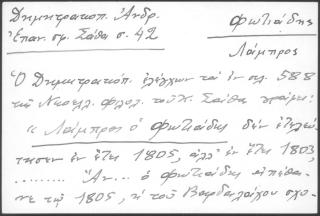 Δημητρακόπ. Ἀνδρ.
Φωτιάδης
Ἐπαν. σφ. Σάθα σ. 42
Λάμπρος
Ὁ Δημητρακόπ. ἐλέγχων τὰ ἐν σελ. 588
τῆς Νεοελλ. Φιλολ. τοῦ Κ. Σάθα γράφει:
« Λάμπρος ὁ Φωτιάδης δὲν ἐτελεύ-
τησεν ἐν ἔτει 1805, ἀλλ' ἐν ἔτει 1803,
......... Ἂν... ὁ Φωτιάδης ἀπέθα-
νε τῷ 1805, ἡ τοῦ Βαρδαλάχου σχο-